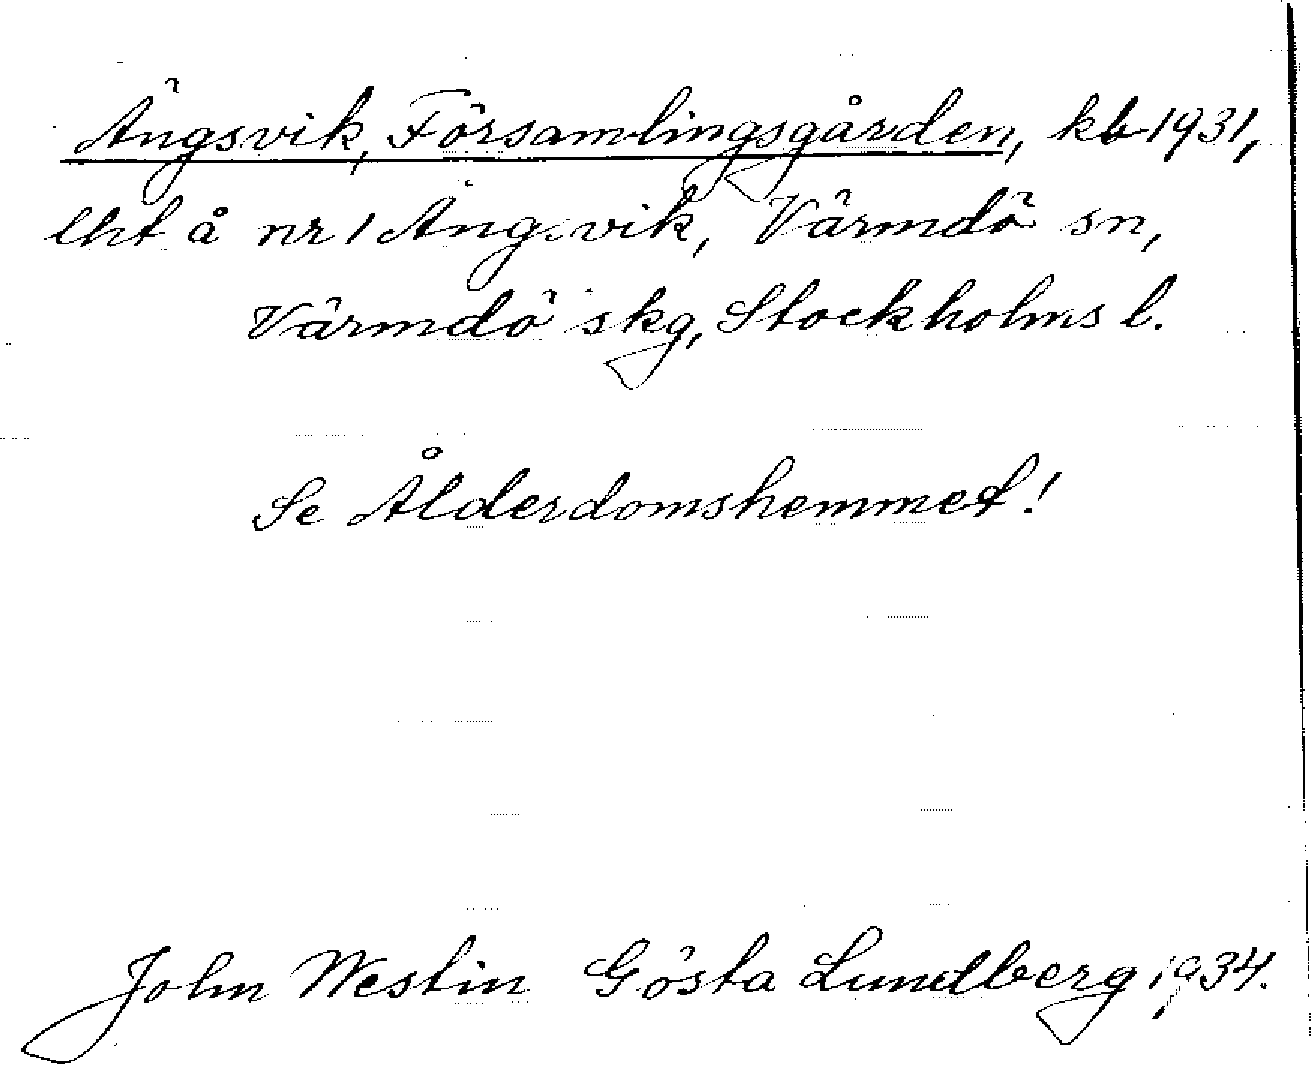 Ängsvik, Församlingsgården, kb 1931,
lht å nr 1 Ängsvik, Värmdö sn,
Värmdö skg, Stockholms l.
Se Ålderdomshemmet!
John Westin Gösta Lundberg 1934.